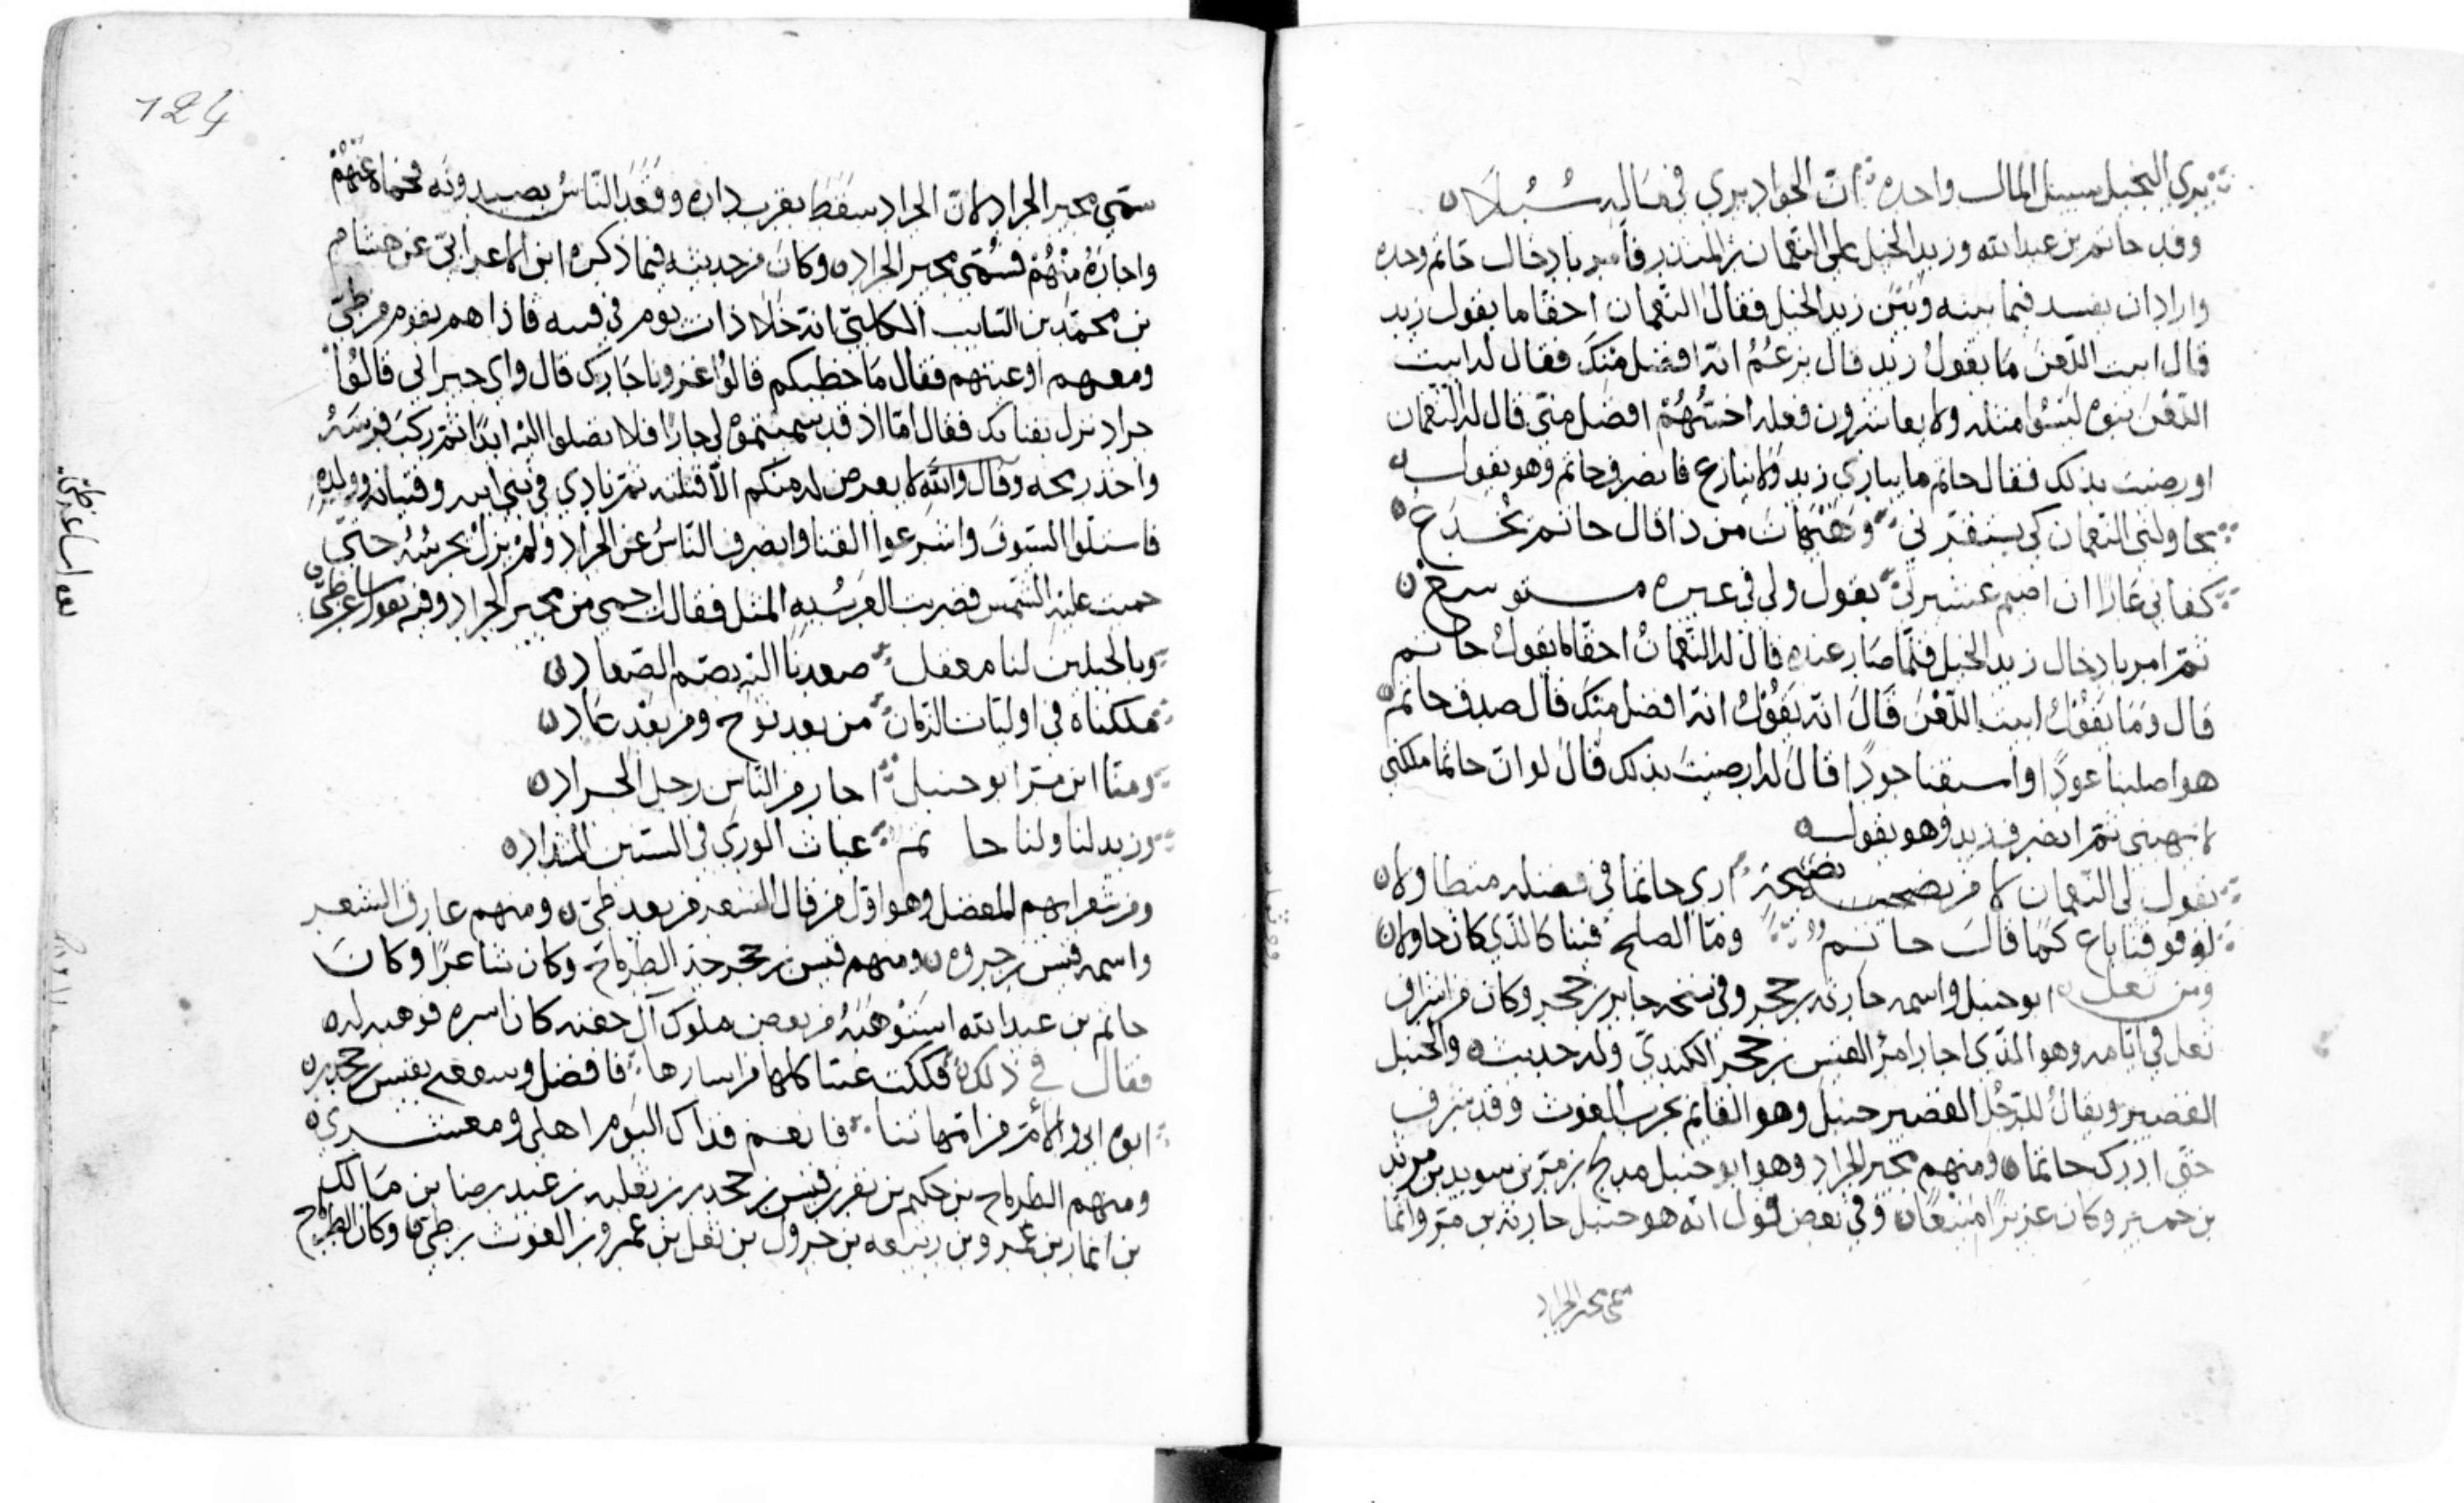 يرى البخيل سبيل المال واحدة ان الجواد يرى في ماله سُبُلَا
وفد حاتم بن عبد الله وزيد الخيل على النعمان بن المنذر فامر بادخال حاتم وحده
واراد ان يفسد فيما بينه وبَيْن زيد الخيل فقال النعمان احقا ما يقول زيد
قال ابيت اللّعن مَا يقولُ زيد قال يزعُمُ انه افضل منك فقال له ابيت
اللّعن بنوه ليْسُوا مثله ولا يعاشرون فعله اخسّهُمْ افضل منّي قال له النعمان
اورضيت بذلك فقال حاتم ما يبارى زيد ولا ينازع فانصرف حاتم وهو يقول
يحاولني النعمان كي يستفزني وهَيْهات من ذا قال حاتم يُخْدَعُ
كفاني عَارًا ان اضيم عشيرتي بقول ولي في غيره متوسع
ثمّ امر بادخال زيد الخيل فلمّا صَار عنده قال له النّعمانُ احقّا ما يقولُ حاتم
قال وَمَا يَقُوْلُ ابيت اللّعْنَ قَالَ انه يَقُوْلُ انه افضل منك قال صدق حاتم
هو اصلبنا عودًا واسبقنا جودًا قال له ارضيت بذلك قال لو ان حاتما ملكني
لانهبني ثمّ انصرف زيد وهو يقول
يقول لي النّعمان لا من نصيحة ارى حاتما في فضله متطاولا
له فوقنا باع كمَا قالَ حاتمُ وما الصلح فينا كالذي كان حاولا
ومن ثعل ابو حنبل واسمه حارثه بن حجر وفي نسخه جابر بن حجر وكان من اشراف
ثعل في ايّامه وهو الذي اجار امرؤ القيس بن حجر الكندي وله حديث والحنبل
القصير ويقالُ للرّجُل القصير حنبل وهو القايم بحرب الغوث وقد شرف
حتى ادرك حاتما ومنهم مجير الجراد وهو ابو حنبل مدلج بن مرّ بن سويد بن مرثد
بن خمير وكان عزيزًا منيعًا وفي بعض القول انه هو حنبل حارثه بن مرّ وانّما
سمّى مجير الجراد
124
سمّى مجير الجراد لانّ الجراد سقط بقرب داره وقعَد النّاسُ يصيدونه فحماه عنهُمْ
واجارهُ منْهُمْ فسُمّى مجير الجراد وكان من حديثه فيما ذكره ابن الاعرابيّ عن هشام
بن محمّد بن السّايب الكلبيّ انه خلا ذات يوم في قبته فاذا هم بقوم من طيّ
ومعهم اوعيتهم فقال مَا خطبكم قالوُا غزونا جَارك قال واي جيراني قالُوا
جراد نزل بفنايك فقال امّا اذ قد سميتموهُ لي جارًا فلا تصلوا اليْه ابدًا ثمّ ركب فرسَهُ
واخذ رمحه وقال واللّه لا يعرض له منكم الّا قتلته ثمّ نادى في بني ابيه وفتيانه وولده
فاستلّوا السّيوفَ واشرعوا القنا وانصرف النّاسُ عن الجراد ولمْ يزلْ يحرسُهُ حتّى
حميت عليْه الشّمس فضربت العربُ به المثل فقالت احمى من مجير الجراد وفيه يقول شاعر طيّ
وبالجبلين لنا معقل صعدنا اليه بصمّ الصّعاد
ملكناه في اوليات الزّمان من بعد نوح ومن بعْد عَاد
ومنّا ابن مرّ ابو حنبل اجار من النّاس رجل الجراد
وزيد لنا ولنا حاتم غياث الورى في السّنين الشداد
ومن شعرايهم المفضل وهو اوّل من قال الشعر من بعد طيّ ومنهم عارق الشعر
واسمه قيس بن جروه ومنهم قيس بن حجر جدّ الطرماح وكان شاعرًا وكانَ
حاتم بن عبد الله استَوْهبَهُ من بعض ملوك آل جفنه كان اسره فوهبه له
فقال في ذلك فككت عديّا كلها من اسارها فافضل وشفعني بقيس بن حجدر
ابوه ابي والامّ من امّهاتنا فانعم فداك اليوم اهلي ومعشري
ومنهم الطرماح بن حكيم بن نفر بن قيس بن حجدر بن ثعلبه بن عبد رضا بن مَالك
بن انمار بن عمرو بن ربيعه بن جرول بن ثعل بن عمرو بن الغوث بن طيّ وكان الطرماح